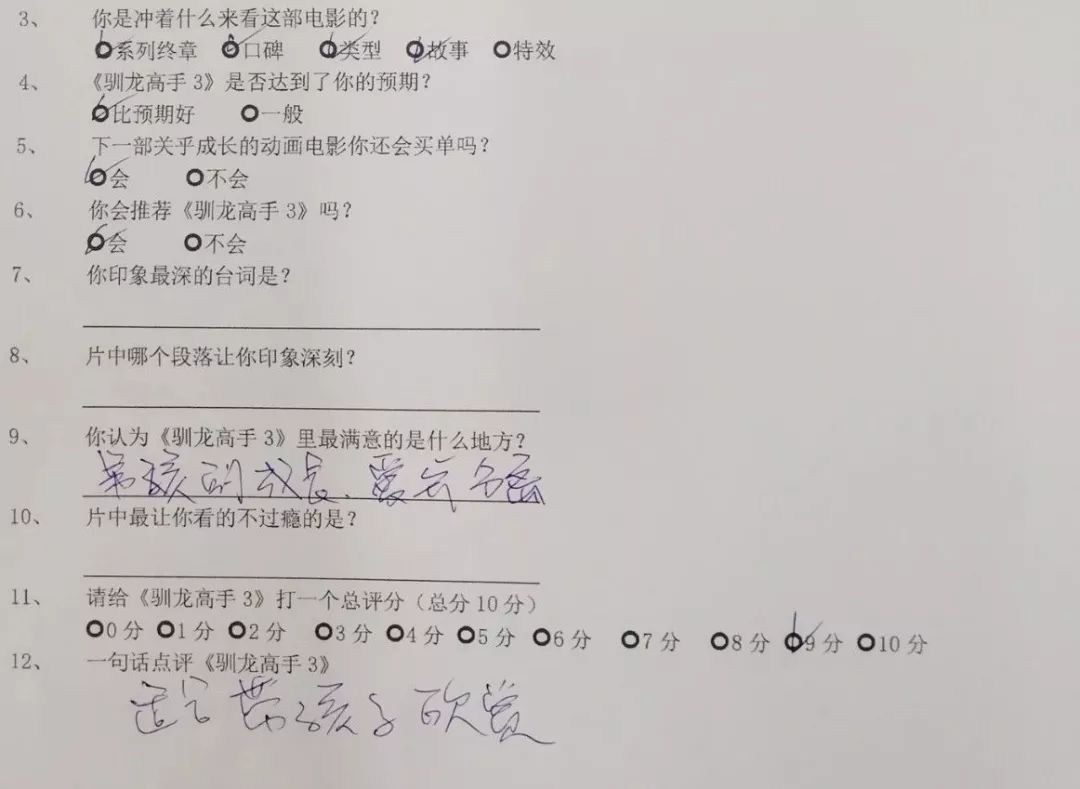 3、 你是冲着什么来看这部电影的?
系列终章 口碑 类型 故事 特效
4、 《驯龙高手 3》是否达到了你的预期?
比预期好 一般
5、 下一部关乎成长的动画电影你还会买单吗?
会 不会
6、 你会推荐《驯龙高手 3》吗?
会 不会
7、 你印象最深的台词是?
8、 片中哪个段落让你印象深刻?
9、 你认为《驯龙高手 3》里最满意的是什么地方?
男孩的成长、爱与
10、 片中最让你看的不过瘾的是?
11、 请给《驯龙高手 3》打一个总评分（总分 10 分）
0 分 1 分 2 分 3 分 4 分 5 分 6 分 7 分 8 分 9 分 10 分
12、 一句话点评《驯龙高手 3》
适合带孩子欣赏